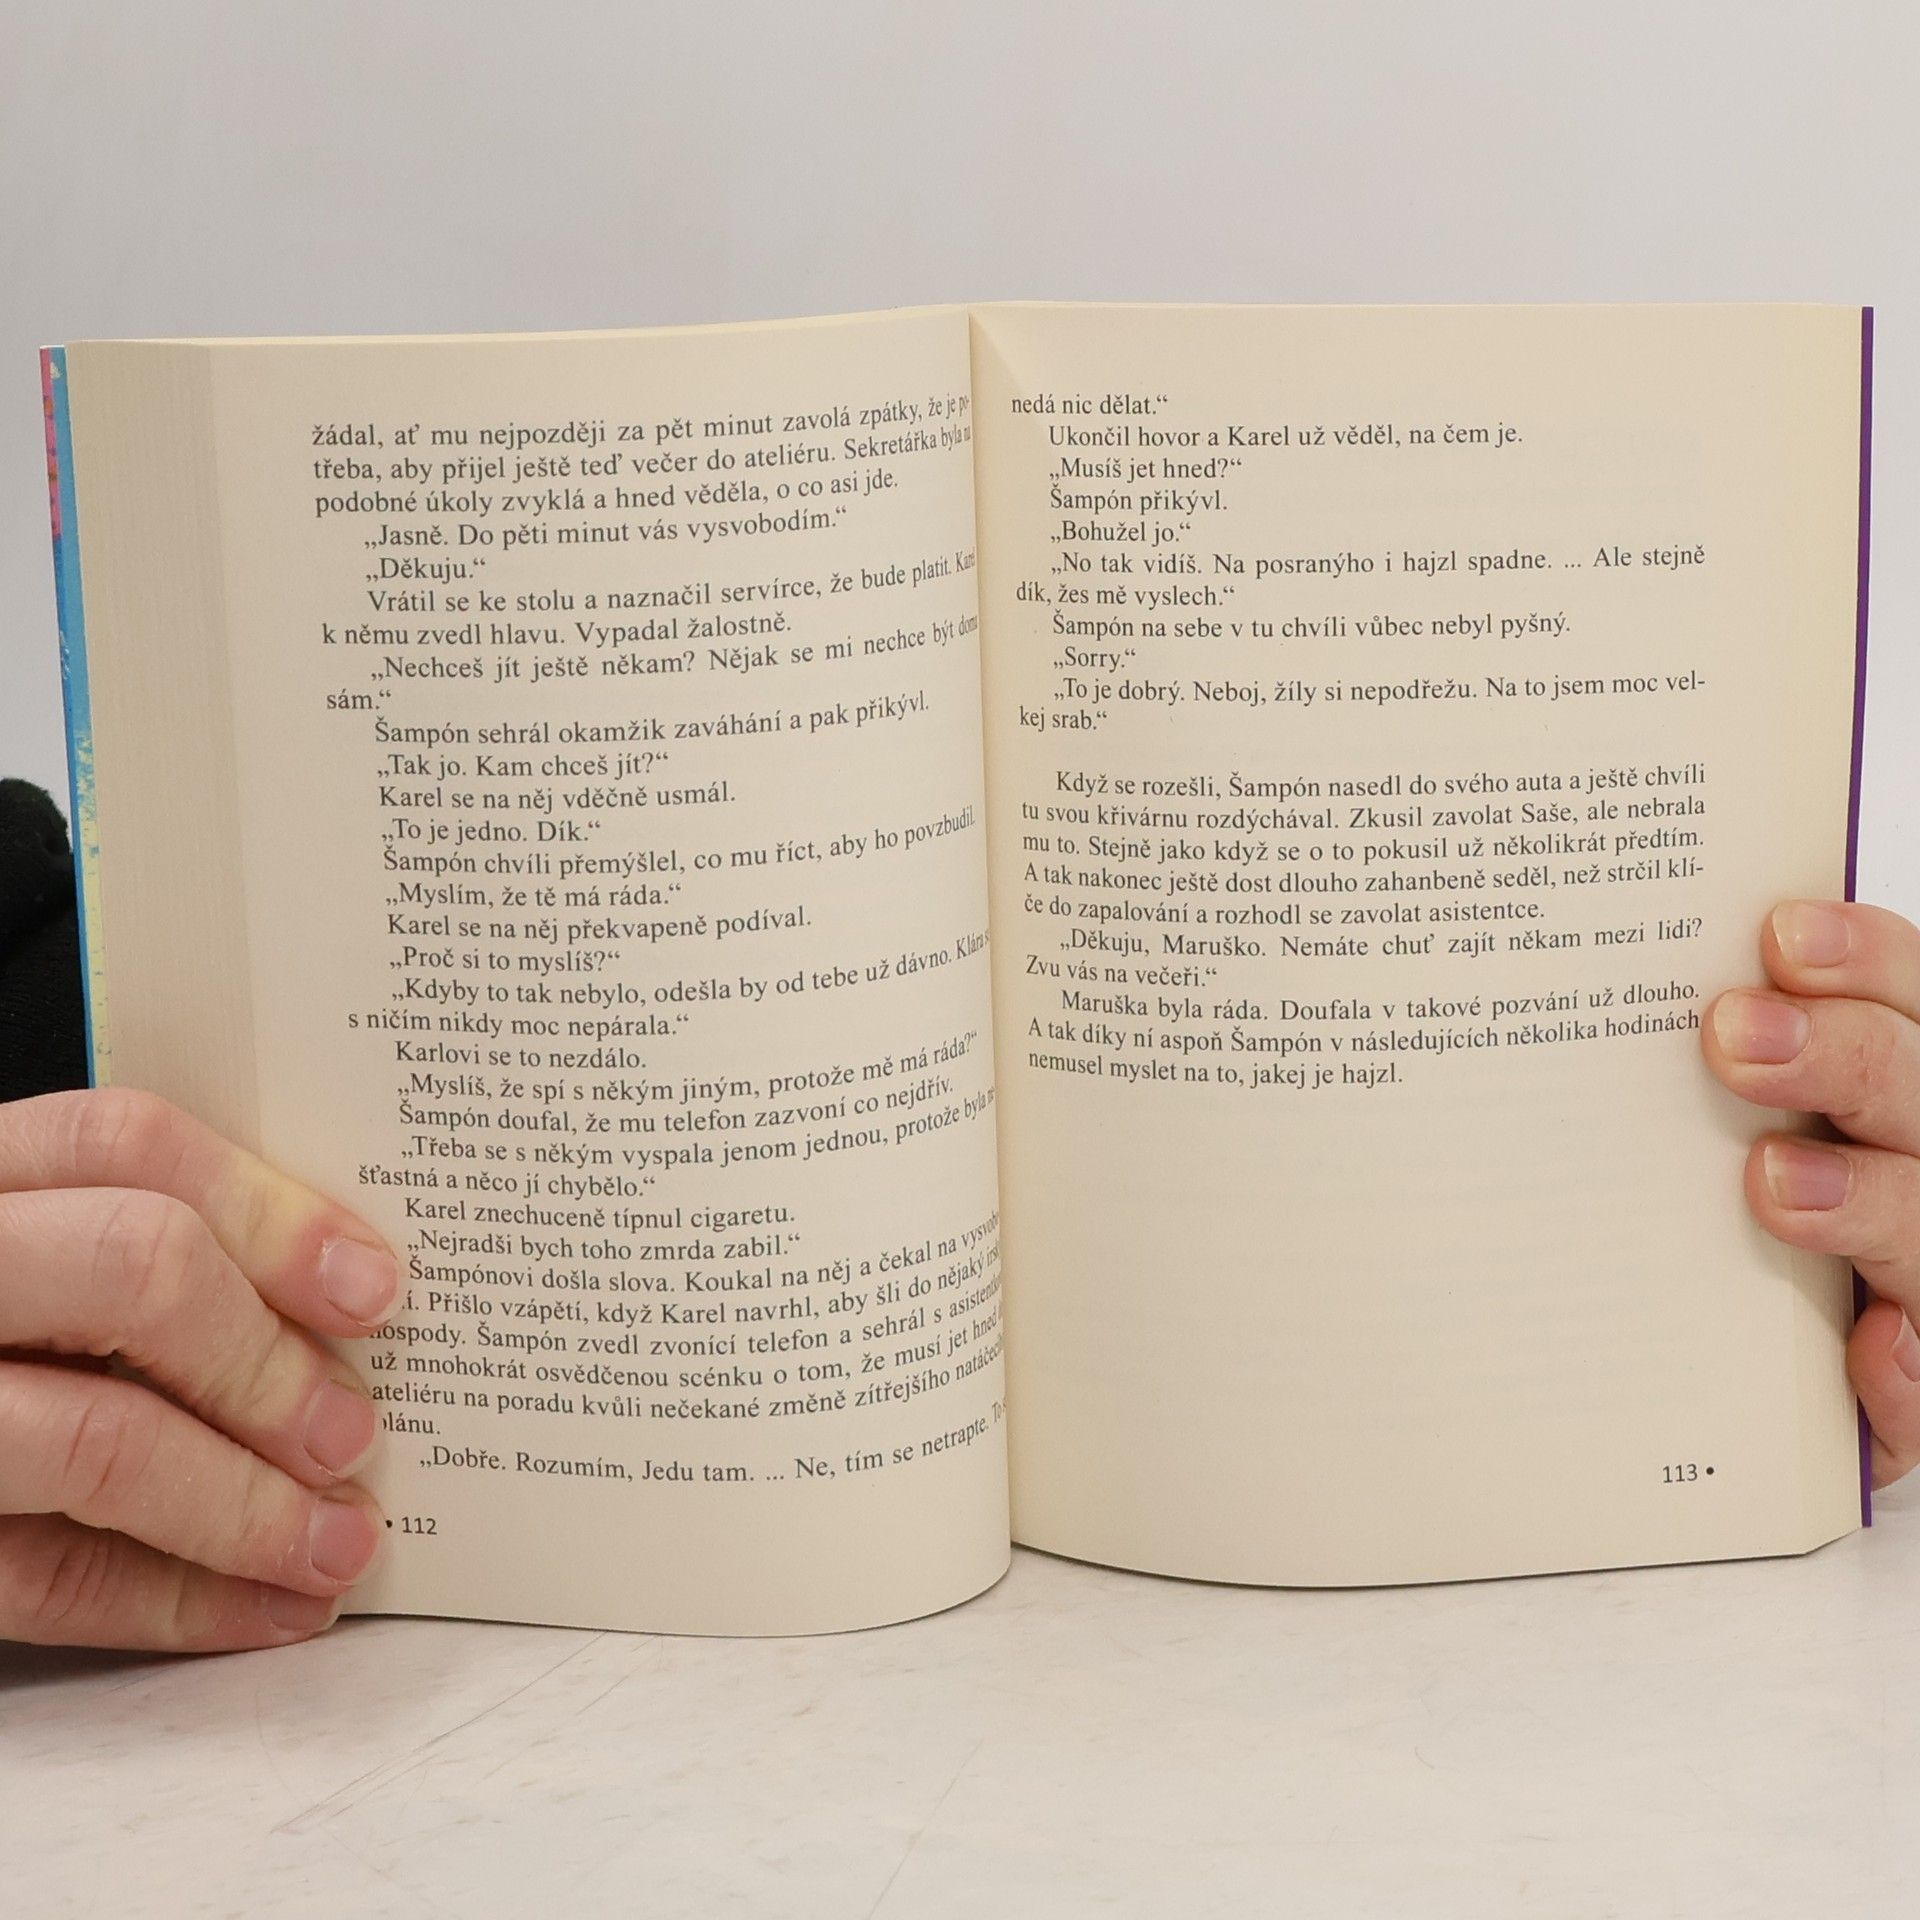 žádal, ať mu nejpozději za pět minut zavolá zpátky, že je po-
třeba, aby přijel ještě teď večer do ateliéru. Sekretářka byla na
podobné úkoly zvyklá a hned věděla, o co asi jde.
„Jasně. Do pěti minut vás vysvobodím.“
„Děkuju.“
Vrátil se ke stolu a naznačil servírce, že bude platit. Karel
k němu zvedl hlavu. Vypadal žalostně.
„Nechceš jít ještě někam? Nějak se mi nechce být doma
sám.“
Šampón sehrál okamžik zaváhání a pak přikývl.
„Tak jo. Kam chceš jít?“
Karel se na něj vděčně usmál.
„To je jedno. Dík.“
Šampón chvíli přemýšlel, co mu říct, aby ho povzbudil.
„Myslím, že tě má ráda.“
Karel se na něj překvapeně podíval.
„Proč si to myslíš?“
„Kdyby to tak nebylo, odešla by od tebe už dávno. Klára
s ničím nikdy moc nepárala.“
Karlovi se to nezdálo.
„Myslíš, že spí s někým jiným, protože mě má ráda?“
Šampón doufal, že mu telefon zazvoní co nejdřív.
„Třeba se s někým vyspala jenom jednou, protože byla
šťastná a něco jí chybělo.“
Karel znechuceně típnul cigaretu.
„Nejradši bych toho zmrda zabil.“
Šampónovi došla slova. Koukal na něj a čekal na
Přišlo vzápětí, když Karel navrhl, aby šli do nějaký
hospody. Šampón zvedl zvonící telefon a sehrál s
už mnohokrát osvědčenou scénku o tom, že musí jet hned
ateliéru na poradu kvůli nečekané změně zítřejšího
plánu.
„Dobře. Rozumím, Jedu tam. ... Ne, tím se netrapte. To
• 112
nedá nic dělat.“
Ukončil hovor a Karel už věděl, na čem je.
„Musíš jet hned?“
Šampón přikývl.
„Bohužel jo.“
„No tak vidíš. Na posranýho i hajzl spadne. ... Ale stejně
dík, žes mě vyslech.“
Šampón na sebe v tu chvíli vůbec nebyl pyšný.
„Sorry.“
„To je dobrý. Neboj, žíly si nepodřežu. Na to jsem moc vel-
kej srab.“
Když se rozešli, Šampón nasedl do svého auta a ještě chvíli
tu svou křivárnu rozdýchával. Zkusil zavolat Saše, ale nebrala
mu to. Stejně jako když se o to pokusil už několikrát předtím.
A tak nakonec ještě dost dlouho zahanbeně seděl, než strčil klí-
če do zapalování a rozhodl se zavolat asistentce.
„Děkuju, Maruško. Nemáte chuť zajít někam mezi lidi?
Zvu vás na večeři.“
Maruška byla ráda. Doufala v takové pozvání už dlouho.
A tak díky ní aspoň Šampón v následujících několika hodinách
nemusel myslet na to, jakej je hajzl.
113 •